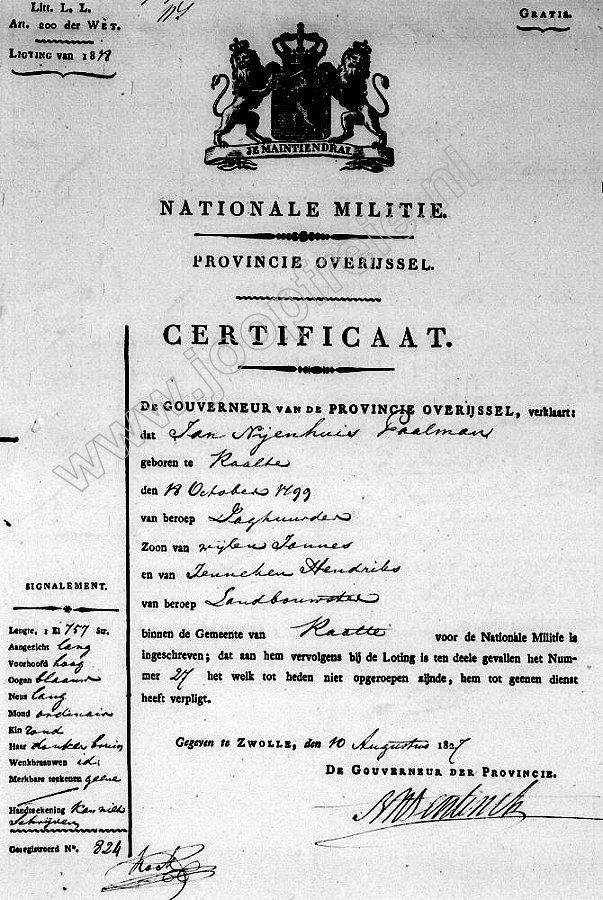 Litt. L. L.
Art. 200 der Wèt.
Ligting van 18
Gratis.
JE MAINTIENDRAI
NATIONALE MILITIE.
PROVINCIE OVERIJSSEL.
CERTIFICAAT.
De GOUVERNEUR van de PROVINCIE OVERIJSSEL, verklaart:
dat Jan Nijenhuis Paalman
geboren te Raalte
den 18 October 1799
van beroep Daghuurder
Zoon van wijlen Jannes
en van Jenneken Hendriks
van beroep Landbouwster
binnen de Gemeente van Raalte voor de Nationale Militie is
ingeschreven; dat aan hem vervolgens bij de Loting is ten deele gevallen het Num-
mer 27 het welk tot heden niet opgeroepen zijnde, hem tot geenen dienst
heeft verpligt.
Gegeven te Zwolle, den 10 Augustus 1827
De Gouverneur der Provincie.
SIGNALEMENT.
Lengte, 1 El 757 Str.
Aangezicht lang
Voorhoofd hoog
Oogen blaauw
Neus lang
Mond ordinair
Kin rond
Haar donker bruin
Wenkbraauwen id:
Merkbare teekenen geene
Handteekening kan niet
schrijven
Geregistreerd No. 824
www.jooptreie.nl